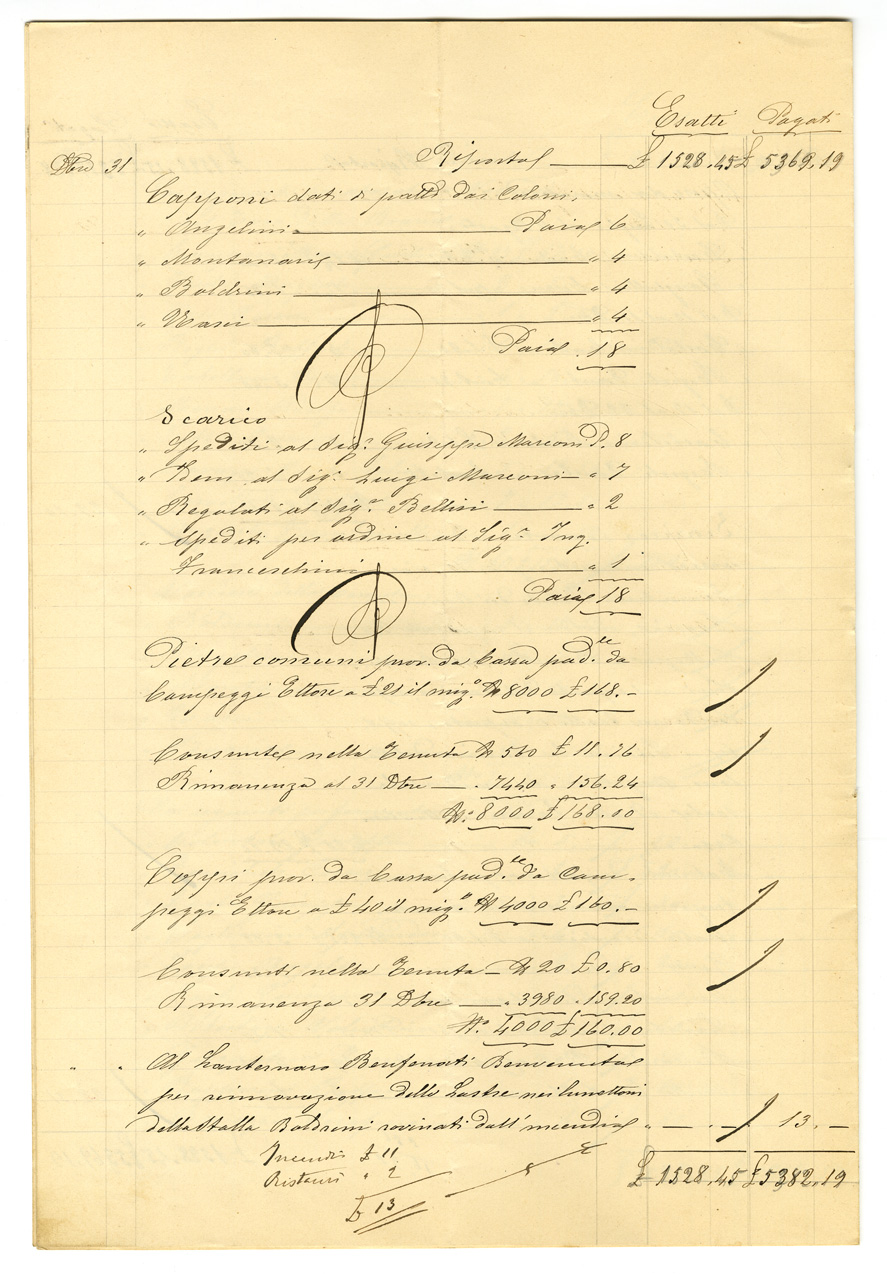 Esatti Pagati
Dbre 31 Riporto £ 1528.45 £ 5369.19
Capponi dati di patto dai Coloni,
" Angelini Paia 6
" Montanari " 4
" Boldrini " 4
" Vasi " 4
Paia . 18
Scarico
" Spediti al Sigr. Giuseppe Marconi P. 8
" Idem al Sigr. Luigi Marconi " 7
" Regalati al Sigr. Bellini " 2
" Spediti per ordine al Sigr. Ing.
Franceschini " 1
Paia 18
Pietre comuni prov. da Cassa pad.le da
Campeggi Ettore a £ 21 il migo. N 8000 £ 168.-
Consunte nella Tenuta N 560 £ 11.76
Rimanenza al 31 Dbre . 7440 " 156.24
N. 8000 £ 168.00
Coppi prov. da Cassa pad.le da Cam-
peggi Ettore a £ 40 il migo. N 4000 £ 160.-
Consunti nella Tenuta N 20 £ 0.80
Rimanenza 31 Dbre " 3980 . 159.20
N. 4000 £ 160.00
" " Al Lanternaro Benfenati Benvenuto
per rinnovazione delle Lastre nei lunettoni
della Stalla Boldrini rovinati dall'incendio " — . — 13. —
Incendi £ 11
Ristauri " 2
£ 13
£ 1528.45 £ 5382.19